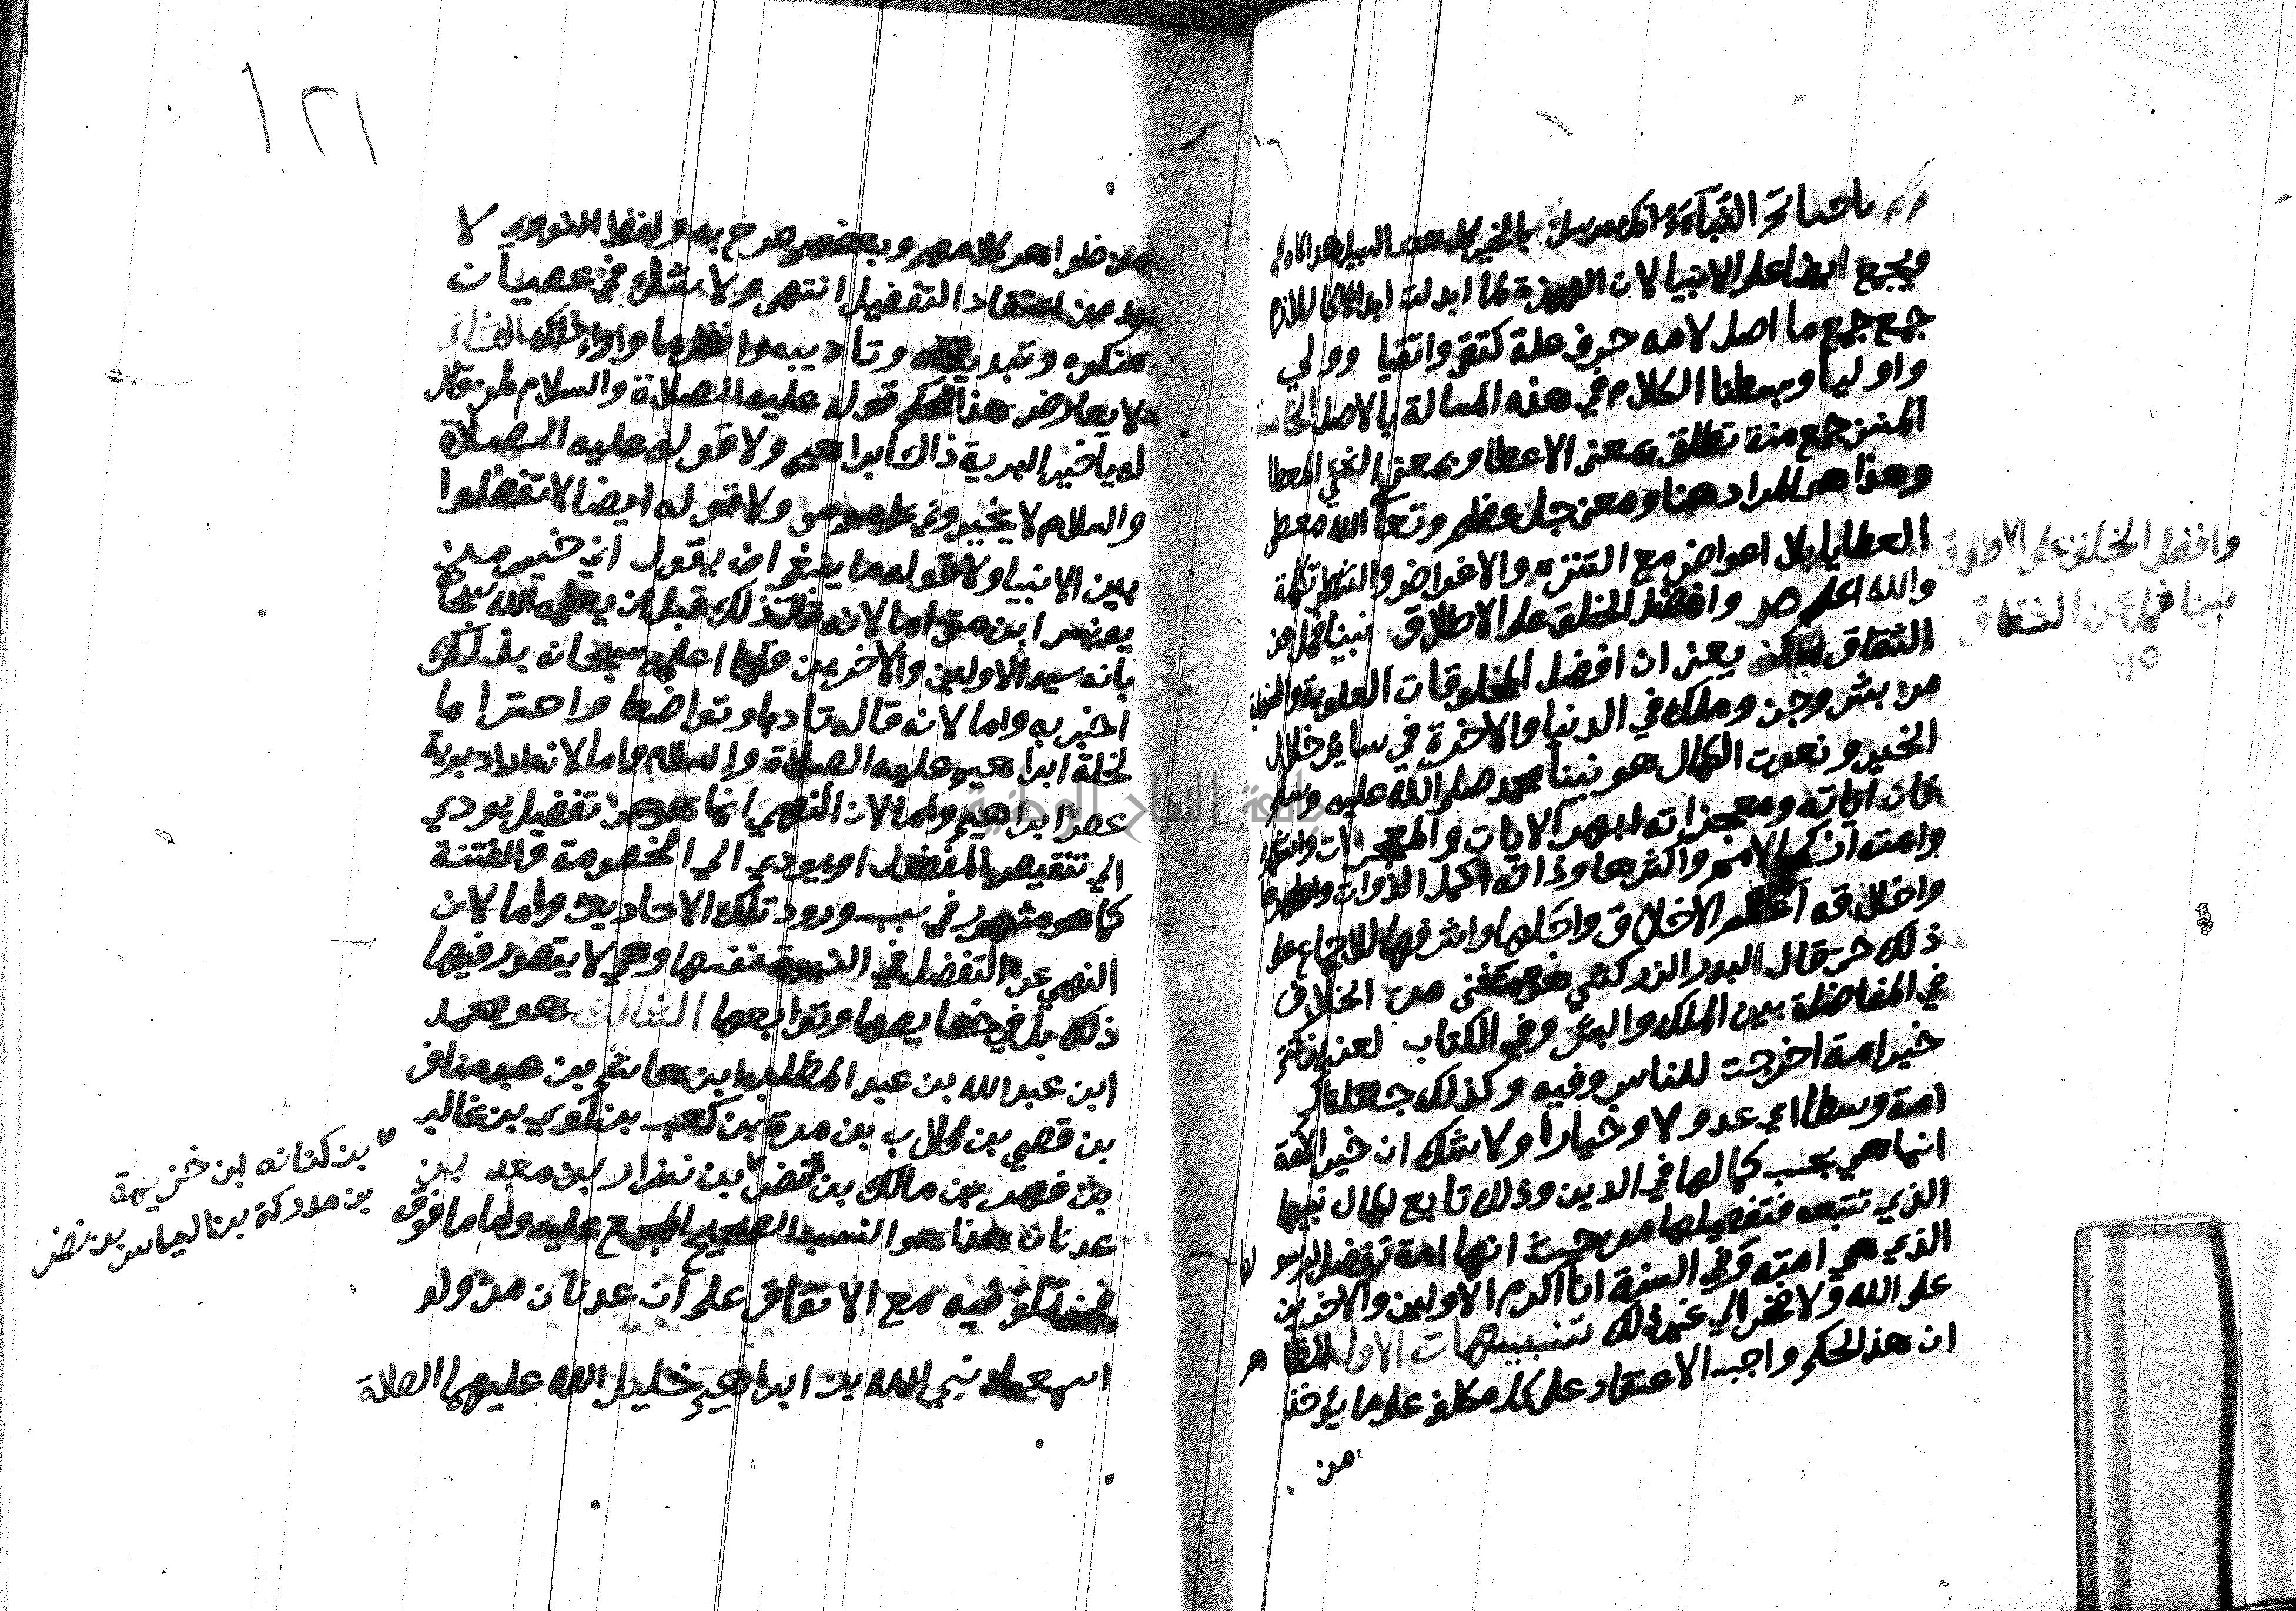 يا خاتم النبآء انك مرسل بالخير كل هدى السبيل هداكا
ويجمع ايضا على الانبيا لان الهمزة لما ابدلت ابدالا لازما
جمع جمع ما اصل لامه حرف علة كتقي واتقيا وولي
واوليا وبسطنا الكلام في هذه المسالة بالاصل
المنن جمع منة تطلق بمعنى الاعطا وبمعنى الشي المعطا
وهذا هو المراد هنا ومعنى جل عظم وتعا الله معطي
العطايا بلا اعواض مع التنزه والاغراض والله
والله اعلم ص وافضل الخلق على الاطلاق نبينا فمل عن
الشقاق يعني ان افضل المخلوقات العلوية والسفلية
من بشر وجن وملك في الدنيا والاخرة في سائر خلال
الخير ونعوت الكمال هو نبينا محمد صلى الله عليه وسلم
فان اياته ومعجزاته ابهر الايات والمعجزات واشهرها
وامته ازكى الامم واكثرها وذاته اكمل الذوات واطهرها
واخلاقه اعظم الاخلاق واكملها واشرفها للاجماع على
ذلك حتى قال البدر الزركشي هو مستثنى من الخلاف
في المفاضلة بين الملك والبشر وفي الكتاب العزيز كنتم
خير امة اخرجت للناس وفيه وكذلك جعلناكم
امة وسطا اي عدولا وخيارا ولا شك ان خير الامة
انما هي بحسب كمالها في الدين وذلك تابع لكمال نبيها
الذي تتبعه فتفضيلها من حيث انها امة تفضيل للرسو لها
الذي هي امته وفي السنة انا اكرم الاولين والاخرين
على الله ولا فخر الي غير ذلك تنبيهات الاول الظا هر
ان هذا الحكم واجب الاعتقاد على كل مكلف على ما يؤخذ
من
وافضل الخلق على الاطلاق
نبينا فمل عن الشقاق
١٢١
من ظواهر كلامهم وبعضهم صرح به ولفظ النووي لا
بد من اعتقاد التفضيل انتهى ولا شك في عصيان
منكره وتبديعه وتاديبه وانظر ما وراء ذلك الثاني
لا يعارض هذا الحكم قوله عليه الصلاة والسلام لمن قال
له يا خير البرية ذاك ابراهيم ولا قوله عليه الصلاة
والسلام لا تخيروني على موسى ولا قوله ايضا لا تفضلوا
بين الانبيا ولا قوله ما ينبغي ان يقول اني خير من
يونس ابن متى اما لانه قال ذلك قبل ان يعلمه الله
بانه سيد الاولين والاخرين فلما اعلمه سبحانه بذلك
اخبر به واما لانه قاله تادبا وتواضعا واحتراما
لخلة ابراهيم عليه الصلاة والسلام واما لانه اراد برية
عصر ابراهيم واما لان النهي انما هو عن تفضيل يودي
الي تنقيص المفضول او يودي الي الخصومة والفتنة
كما هو مشهور في سبب ورود تلك الاحاديث واما لان
النهي عن التفضيل في النبوة نفسها وهي لا يتصور فيها
ذلك بل في خصايصها وتوابعها الثالث هو محمد
ابن عبد الله بن عبد المطلب ابن هاشم بن عبد مناف
بن قصي بن كلاب بن مرة بن كعب بن لؤي بن غالب
بن فهر بن مالك بن النضر بن نزار بن معد بن
عدنان هذا هو النسب الصحيح المجمع عليه واما ما فوق
فمختلف فيه مع الاتفاق على ان عدنان من ولد
اسمعيل نبي الله بن ابراهيم خليل الله عليهما الصلاة
بن كنانه بن خزيمة
بن مدركة بن الياس بن مضر